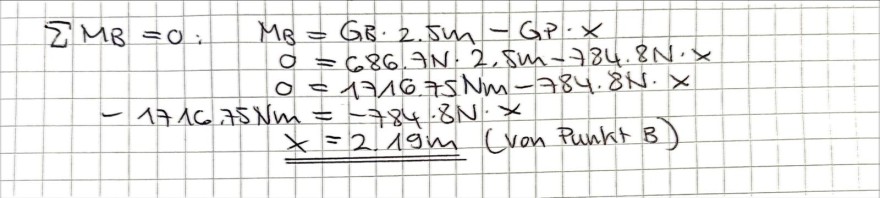 ΣMB = 0: MB = GB · 2.5m - GP · x
0 = 686.7N · 2.5m - 784.8N · x
0 = 1716.75Nm - 784.8N · x
- 1716.75Nm = -784.8N · x
x = 2.19m (von Punkt B)